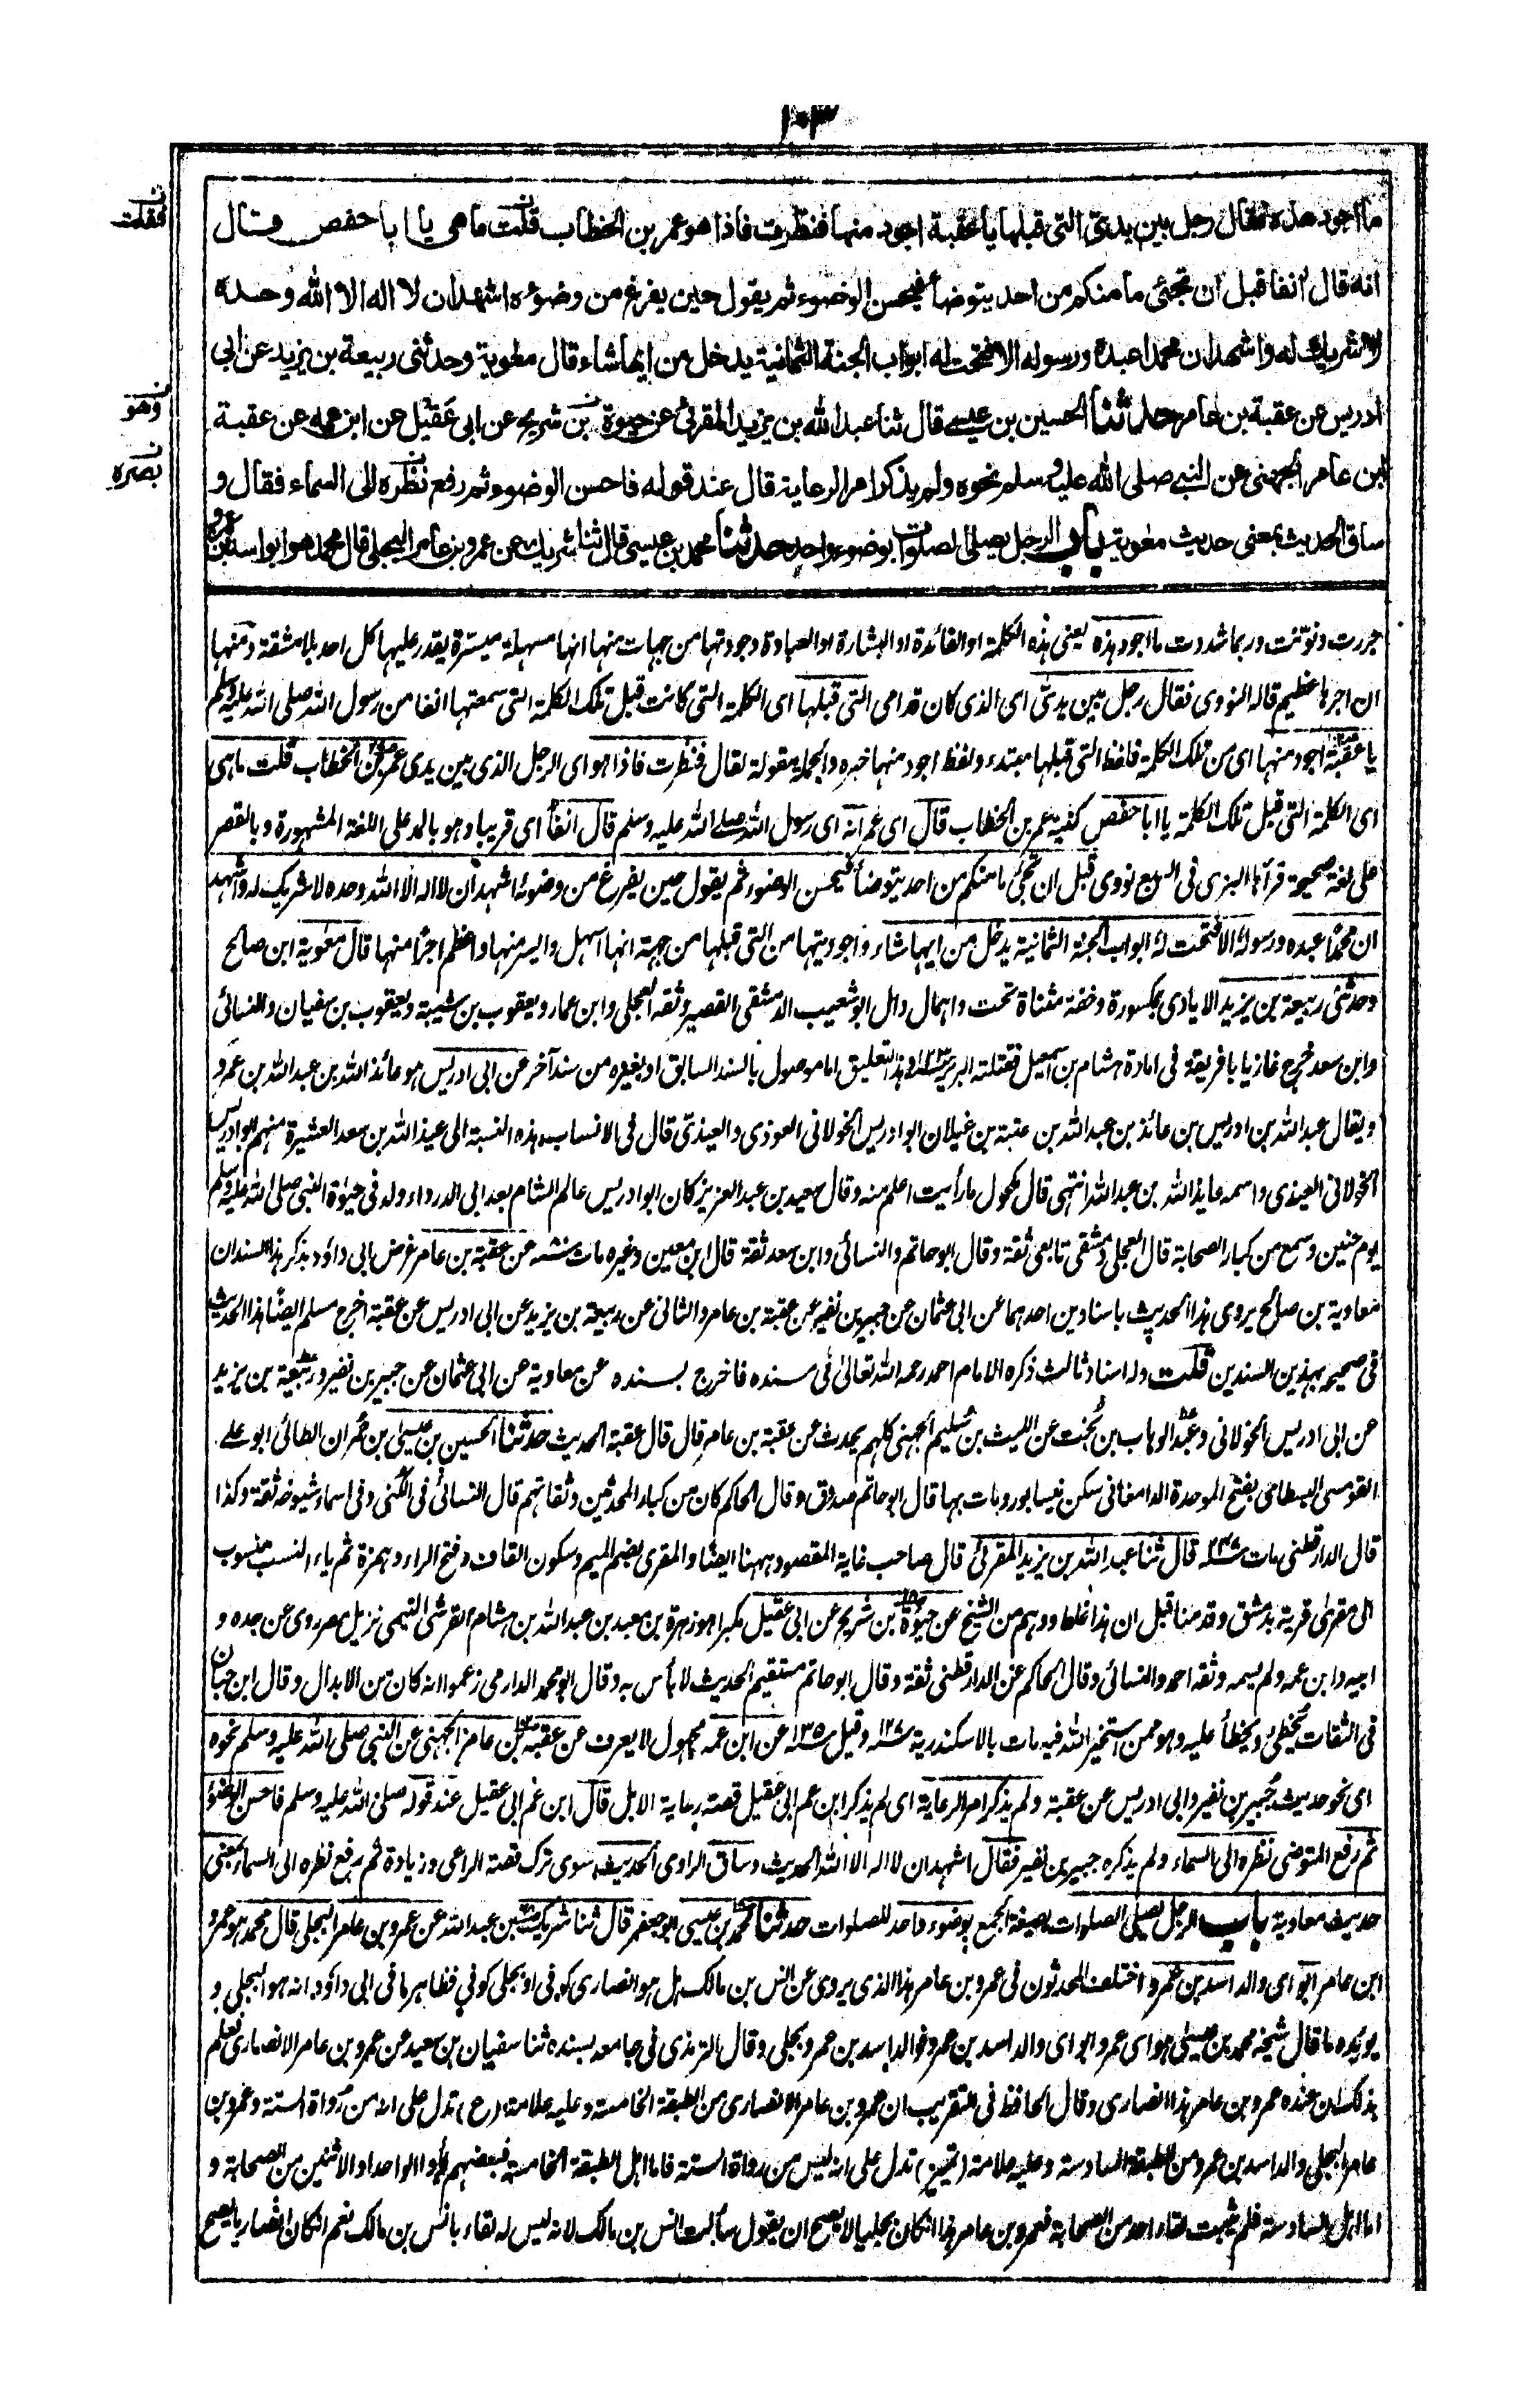 ١٠٣
ما اجود هذه فقال رجل بين يدي التي قبلها يا عقبة اجود منها فنظرت فاذا هو عمر بن الخطاب قلت ما هي يا ابا حفص قال
فقلت
انه قال انفا قبل ان تجئ ما منكم من احد يتوضأ فيحسن الوضوء ثم يقول حين يفرغ من وضوءه اشهد ان لا اله الا الله وحده
لا شريك له واشهد ان محمدا عبده ورسوله الا فتحت له ابواب الجنة الثمانية يدخل من ايها شاء قال معوية وحدثني ربيعة بن يزيد عن ابي
ادريس عن عقبة بن عامر حدثنا الحسين بن عيسى قال ثنا عبد الله بن يزيد المقرئ عن حيوة بن شريح عن ابي عقيل عن ابن عمه عن عقبة
وهو
ابن عامر الجهني عن النبي صلى الله عليه وسلم نحوه ولم يذكر امر الرعاية قال عند قوله فاحسن الوضوء ثم رفع نظره الى السماء فقال و
بصره
ساق الحديث بمعنى حديث معوية باب الرجل يصلي الصلوات بوضوء واحد حدثنا محمد بن عيسى قال ثنا شريك عن عمرو بن عامر البجلي قال محمد هو ابو اسد بن عمرو
جررت ونونت وربما شددت ما اجود هذه يعني هذه الكلمة او الفائدة او البشارة او العبادة وجودتها من جهات منها انها سهلة ميسرة يقدر عليها كل احد بلا مشقة ومنها
ان اجرها عظيم قاله النووي فقال رجل بين يدي اي الذي كان قدامي التي قبلها اي الكلمة التي كانت قبل تلك الكلمة التي سمعتها انفا من رسول الله صلى الله عليه وسلم
يا عقبة اجود منها اي من تلك الكلمة فلفظ التي قبلها مبتدء ولفظ اجود منها خبره والجملة مقولة لقال فنظرت فاذا هو اي الرجل الذي بين يدي عمر بن الخطاب قلت ما هي
اي الكلمة التي قبل تلك الكلمة يا ابا حفص كنية عمر بن الخطاب قال اي عمر انه اي رسول الله صلى الله عليه وسلم قال آنفا اي قريبا وهو بالمد على اللغة المشهورة وبالقصر
على لغة صحيحة قرأ بها البزي في السبع نووي قبل ان تجئ ما منكم من احد يتوضأ فيحسن الوضوء ثم يقول حين يفرغ من وضوئه اشهد ان لا اله الا الله وحده لا شريك له واشهد
ان محمدا عبده ورسوله الا فتحت له ابواب الجنة الثمانية يدخل من ايها شاء واجوديتها من التي قبلها من جهة انها اسهل وايسر منها واعظم اجرا منها قال معوية ابن صالح
وحدثني ربيعة بن يزيد الايادي بمكسورة وخفة مثناة تحت واهمال دال ابو شعيب الدمشقي القصير وثقه العجلي وابن عمار ويعقوب بن شيبة ويعقوب بن سفيان والنسائي
وابن سعد خرج غازيا بافريقة في امارة هشام بن اسمعيل فقتلته البربر وهذا التعليق اما موصول بالسند السابق او بغيره من سند آخر عن ابي ادريس هو عائذ الله بن عبد الله بن عمرو
ويقال عبد الله بن ادريس بن عائذ بن عبد الله بن عتبة بن غيلان ابو ادريس الخولاني العوذي والعيذي قال في الانساب هذه النسبة الى عيذ الله بن سعد العشيرة منهم ابو ادريس
الخولاني العيذي واسمه عايذ الله بن عبد الله انتهى قال مكحول ما رأيت اعلم منه وقال سعيد بن عبد العزيز كان ابو ادريس عالم الشام بعد ابي الدرداء ولد في حيوة النبي صلى الله عليه وسلم
يوم حنين وسمع من كبار الصحابة قال العجلي دمشقي تابعي ثقة وقال ابو حاتم والنسائي وابن سعد ثقة قال ابن معين وغيره مات سنة عن عقبة بن عامر غرض ابي داؤد بذكر هذا السند ان
معاوية بن صالح يروي هذا الحديث باسنادين احدهما عن ابي عثمان عن جبير بن نفير عن عقبة بن عامر والثاني عن ربيعة بن يزيد عن ابي ادريس عن عقبة اخرج مسلم ايضا هذا الحديث
في صحيحه بهذين السندين قلت وله اسناد ثالث ذكره الامام احمد رحمه الله تعالى في مسنده فاخرج بسنده عن معاوية عن ابي عثمان عن جبير بن نفير وربيعة بن يزيد
عن ابي ادريس الخولاني وعبد الوهاب بن بخت عن الليث بن سليم الجهني كلهم يحدث عن عقبة بن عامر قال قال عقبة الحديث حدثنا الحسين بن عيسى بن حمران الطائي ابو علي
القومسي البسطامي بفتح الموحدة الدامغاني سكن نيسابور ومات بها قال ابو حاتم صدوق وقال الحاكم كان من كبار المحدثين وثقاتهم قال النسائي في الكنى وفي اسماء شيوخه ثقة وكذا
قال الدارقطني مات ٢٤٧ قال ثنا عبد الله بن يزيد المقرئ قال صاحب غاية المقصود ههنا ايضا والمقري بضم الميم وسكون القاف وفتح الراء وهمزة ثم ياء النسب منسوب
الى مقرى قرية بدمشق وقدمنا قبل ان هذا غلط ووهم من الشيخ عن حيوة بن شريح عن ابي عقيل مكبرا هو زهرة بن معبد بن عبد الله بن هشام القرشي التيمي نزيل مصر روى عن جده و
ابيه وابن عمه ولم يسمه وثقه احمد والنسائي وقال الحاكم عن الدارقطني ثقة وقال ابو حاتم مستقيم الحديث لا بأس به وقال ابو محمد الدارمي زعموا انه كان من الابدال وقال ابن حبان
في الثقات يخطي ويخطأ عليه وهو ممن استخير الله فيه مات بالاسكندرية ١٢٧ وقيل ١٣٥ عن ابن عمه مجهول لا يعرف عن عقبة بن عامر الجهني عن النبي صلى الله عليه وسلم نحوه
اي نحو حديث جبير بن نفير وابي ادريس عن عقبة ولم يذكر امر الرعاية اي لم يذكر ابن عم ابي عقيل قصة رعاية الابل قال ابن عم ابي عقيل عند قوله صلى الله عليه وسلم فاحسن الوضوء
ثم رفع المتوضي نظره الى السماء ولم يذكره جبير بن نفير فقال اشهد ان لا اله الا الله الحديث وساق الراوي الحديث سوى ترك قصة الراعي وزيادة ثم رفع نظره الى السماء بمعنى
حديث معاوية باب الرجل يصلي الصلوات بصيغة الجمع بوضوء واحد للصلوات حدثنا محمد بن عيسى ابو جعفر قال ثنا شريك بن عبد الله عن عمرو بن عامر البجلي قال محمد هو عمرو
ابن عامر ابو اي والد اسد بن عمرو اختلف المحدثون في عمرو بن عامر هذا الذي يروي عن انس بن مالك هل هو انصاري كوفي او بجلي كوفي فظاهر ما في ابي داؤد انه هو البجلي و
يؤيده ما قال شيخه محمد بن عيسى هو اي عمرو ابو اي والد اسد بن عمرو فوالد اسد بن عمرو بجلي وقال الترمذي في جامعه بسنده ثنا سفيان بن سعيد عن عمرو بن عامر الانصاري فعلم
بذلك ان عنده عمرو بن عامر هذا انصاري وقال الحافظ في التقريب ان عمرو بن عامر الانصاري من الطبقة الخامسة وعليه علامة (ع) تدل على انه من رواة الستة وعمرو بن
عامر البجلي والد اسد بن عمرو من الطبقة السادسة وعليه علامة (تمييز) تدل على انه ليس من رواة الستة فاما اهل الطبقة الخامسة فبعضهم رأوا الواحد او الاثنين من الصحابة و
اما اهل السادسة فلم يثبت لقاء احد من الصحابة فعمرو بن عامر هذا ان كان بجليا لا يصح ان يقول سألت انس بن مالك لانه ليس له لقاء بانس بن مالك نعم ان كان انصاريا يصح